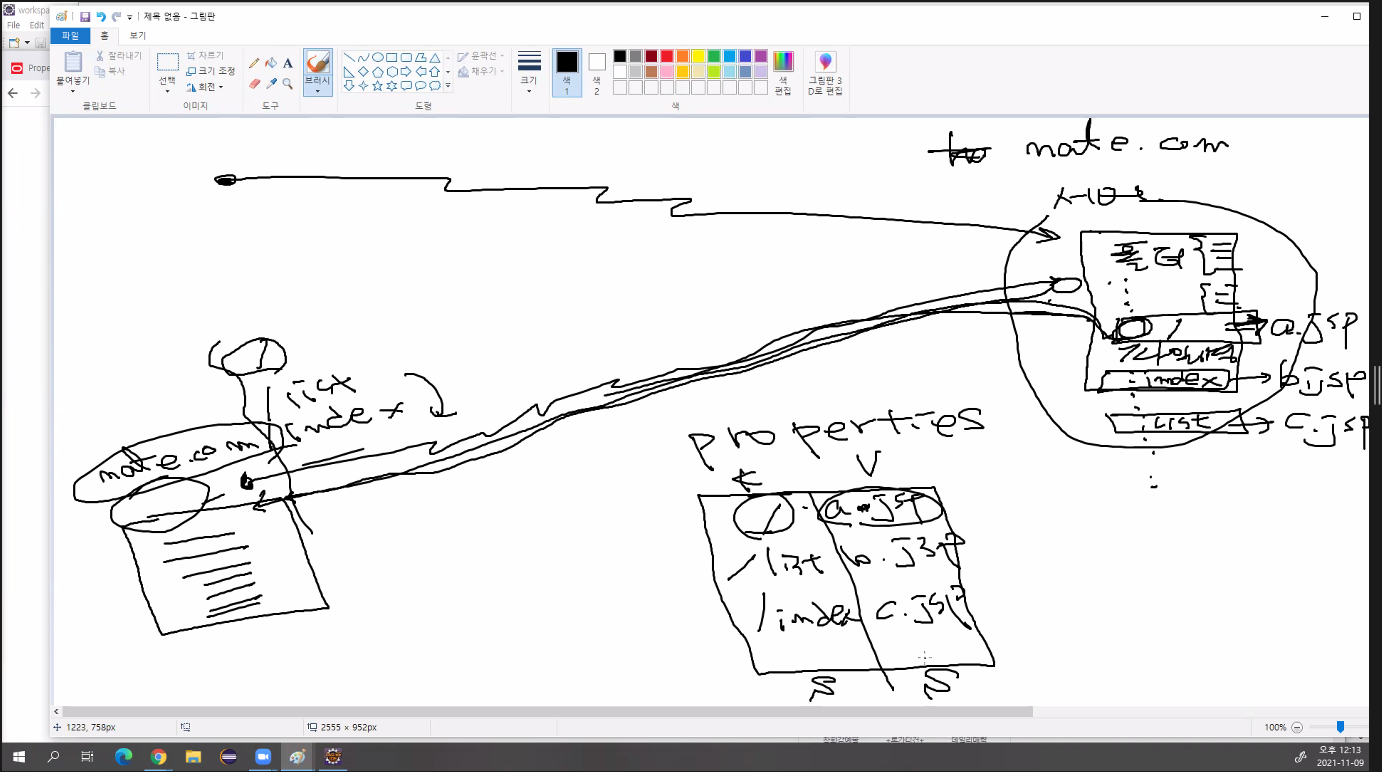 workspa
File Edit
Prope
제목 없음 - 그림판
파일 홈 보기
붙여넣기
잘라내기
복사
클립보드
선택
자르기
크기 조정
회전
이미지
도구
브러시
도형
윤곽선
채우기
크기
색 1
색 2
색 편집
색
그림판 3D로 편집
nate.com
a.jsp
index b.jsp
list c.jsp
list
index
nate.com
properties
K V
/ a.jsp
/list b.jsp
/index c.jsp
S S
1223, 758px
2555 × 952px
100%
오후 12:13
2021-11-09